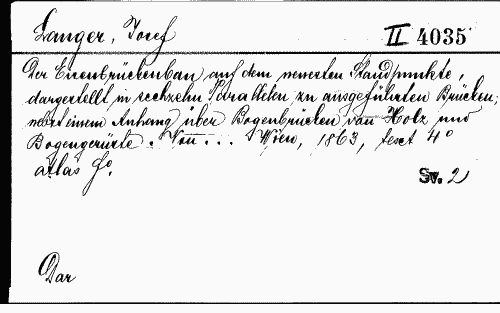 Langer, Josef II 4035
Der Eisenbrückenbau auf dem neuesten Standpunkte,
dargestellt in sechzehn Projekten zu ausgeführten Brücken;
nebst einem Anhang über Bogenbrücken von Holz und
Bogengerüste. Von ... Wien, 1863, text 4°
atlas f°.
Sv. 2
Dar